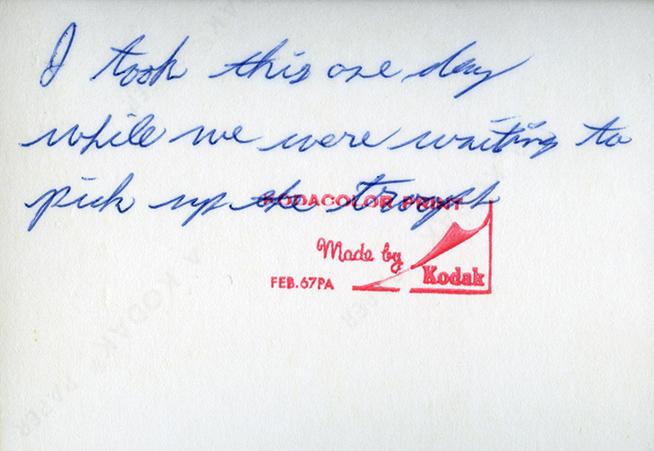 I took this one day
while we were waiting to
pick up the troops
KODACOLOR PRINT
Made by
Kodak
FEB.67PA
A KODAK PAPER